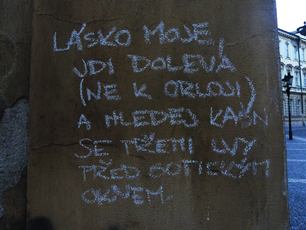 LÁSKO MOJE,
JDI DOLEVA
(NE K ORLOJI)
A HLEDEJ
SE TŘEMI LVY
PŘED GOTICKÝM
OKNEM.